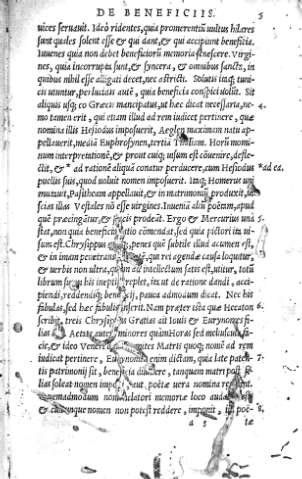 DE BENEFICIIS. 5
uices seruauit. Ideò ridentes, quia promerentium uultus hilares
sunt quales solent esse & qui dant, & qui accipiunt beneficia.
Iuuenes quia non debet beneficiorum memoria senescere. Virgi-
nes, quia incorrupta sunt, & syncera, & omnibus sancta, in
quibus nihil esse alligati decet, nec astricti. Solutis itaq; tuni-
cis utuntur, perlucidis autē, quia beneficia conspici uolūt. Sit
aliquis usq; eo Græcis mancipatus, ut hæc dicat necessaria, ne- 4.
mo tamen erit, qui etiam illud ad rem iudicet pertinere, quæ
nomina illis Hesiodus imposuerit, Aeglen maximam natu ap-
pellauerit, mediā Euphrosynen, tertiā Thaliam. Horū nomi-
num interpretationē, & prout cuiq; uisum est cōuenire, defle-
ctit, & * ad rationē aliquā conatur perducere, cum Hesiodus *ad ea.
puellis suis, quod uoluit nomen imposuerit. Itaq; Homerus uni
mutauit, Pasitheam appellauit, & in matrimoniū produxit, ut
scias illas Vestales nō esse uirgines. Inueniā aliū poëtam, apud
quē præcingātur, & prodeāt. Ergo & Mercurius unà 5.
stat, non quia beneficia ratio comendat, sed quia pictori ita ui-
sum est. Chrysippus quoq; penes quē subtile illud acumen est,
& in imam penetrans qui rei agendæ causa loquitur,
& uerbis non ultra, quàm ad intellectum satis est, utitur, totū
librum suum his ineptijs replet, ita ut de ratione dandi, acci-
piendi, reddendiq; beneficij, pauca admodum dicat. Nec his
fabulas, sed hæc fabulis inserit. Nam præter ista quæ Hecaton 6.
scribit, tres Chrysippus Gratias ait Iouis & Eurynomes fi-
lias Aetate autem minores quàm Horas sed meliuscula fa-
cie, & ideo Veneri comites Matris quoq; nomē ad rem
iudicat pertinere, Eurynomen enim dictam, quia late paten- 7.
tis patrimonij sit, beneficia diuidere, tanquam matri post fi-
lias soleat nomen imponi, aut poëtæ uera nomina reddant.
Quemadmodum nomenclatori memoriæ loco audacia est,
& cuicunque nomen non potest reddere, imponit, ita poë- 8.
a 3 tæ